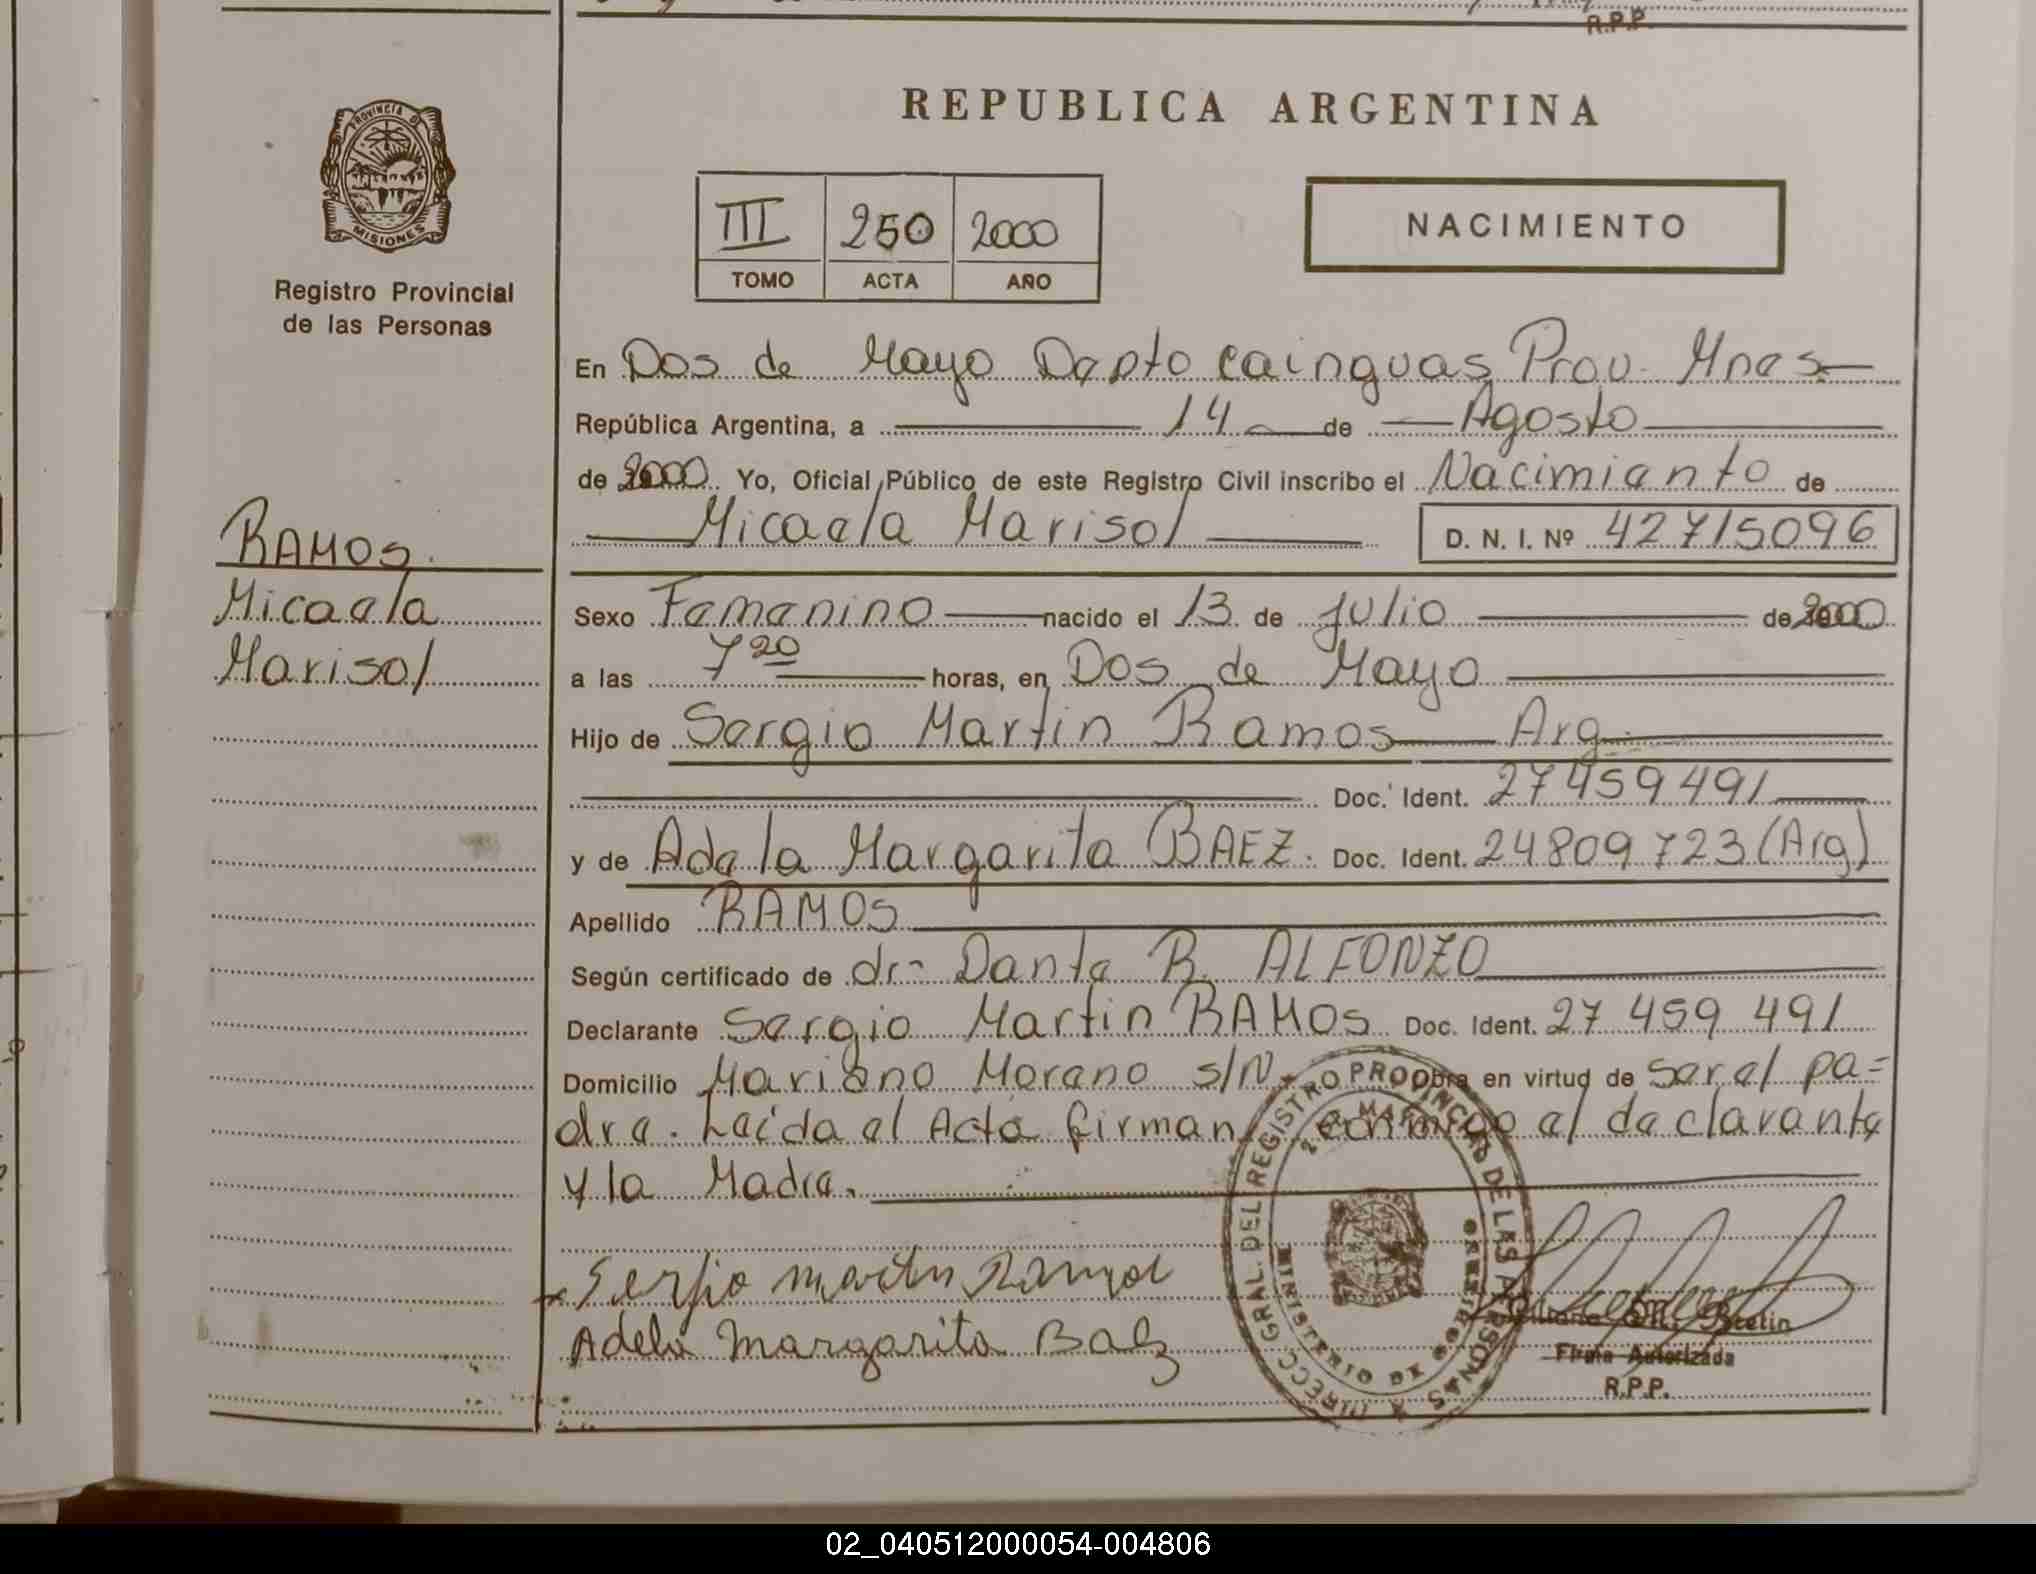 R.P.P.
REPUBLICA ARGENTINA
PROVINCIA D
MISIONES
Registro Provincial
de las Personas
III 250 2000
TOMO ACTA AÑO
NACIMIENTO
En Dos de Mayo Depto cainguas Prov. Mnes
República Argentina, a 14 de Agosto
de 2000 Yo, Oficial Público de este Registro Civil inscribo el Nacimiento de
Micaela Marisol D. N. I. Nº 42715096
RAMOS.
Micaela
Marisol
Sexo Femenino nacido el 13 de Julio de 2000
a las 7 20 horas, en Dos de Mayo
Hijo de Sergio Martin Ramos Arg.
Doc. Ident. 27 459 491
y de Adela Margarita BAEZ. Doc. Ident. 24809723 (Arg)
Apellido RAMOS
Según certificado de dr- Dante R. ALFONZO
Declarante Sergio Martin RAMOS Doc. Ident. 27 459 491
Domicilio Mariano Moreno s/N Obra en virtud de ser el pa=
dre. Leída el Acta firman conmigo el declarante
y la Madre.
Sergio Martin Ramos
Adela Margarita Baez
DIRECC. GRAL. DEL REGISTRO PROVINCIAL DE LAS PERSONAS
MINISTERIO DE GOBIERNO
Firma Autorizada
R.P.P.
02_040512000054-004806